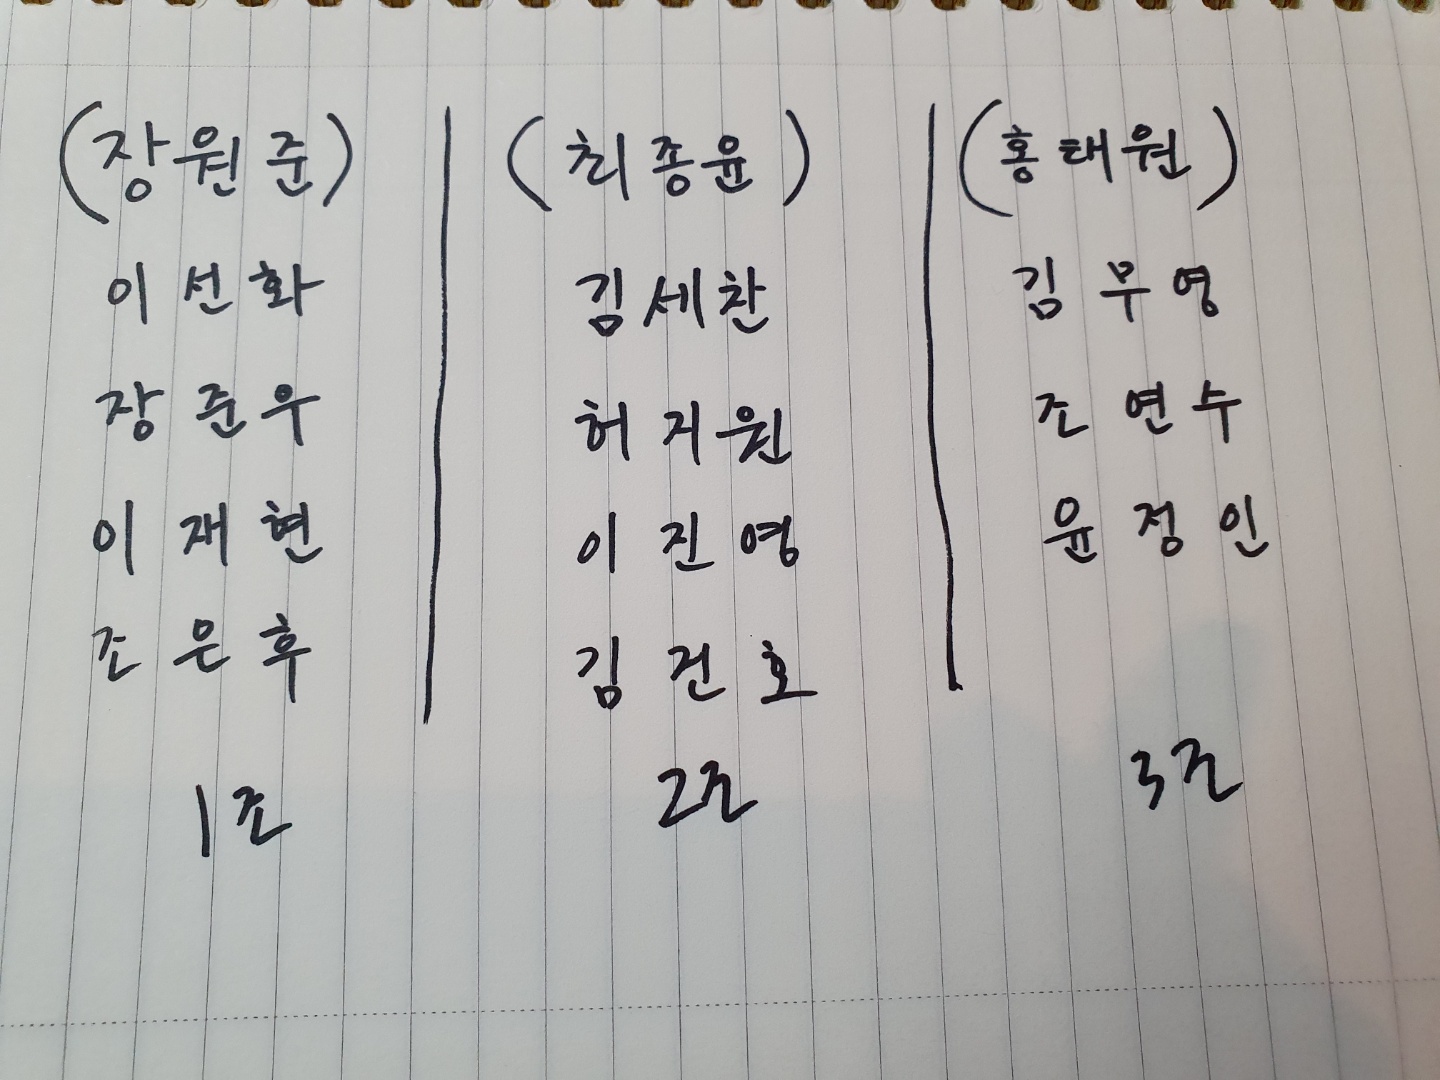 (장원준)
이선화
장준우
이재현
조은후
1조
(최종윤)
김세찬
허지원
이진영
김건호
2조
(홍태원)
김무영
조연수
윤정인
3조